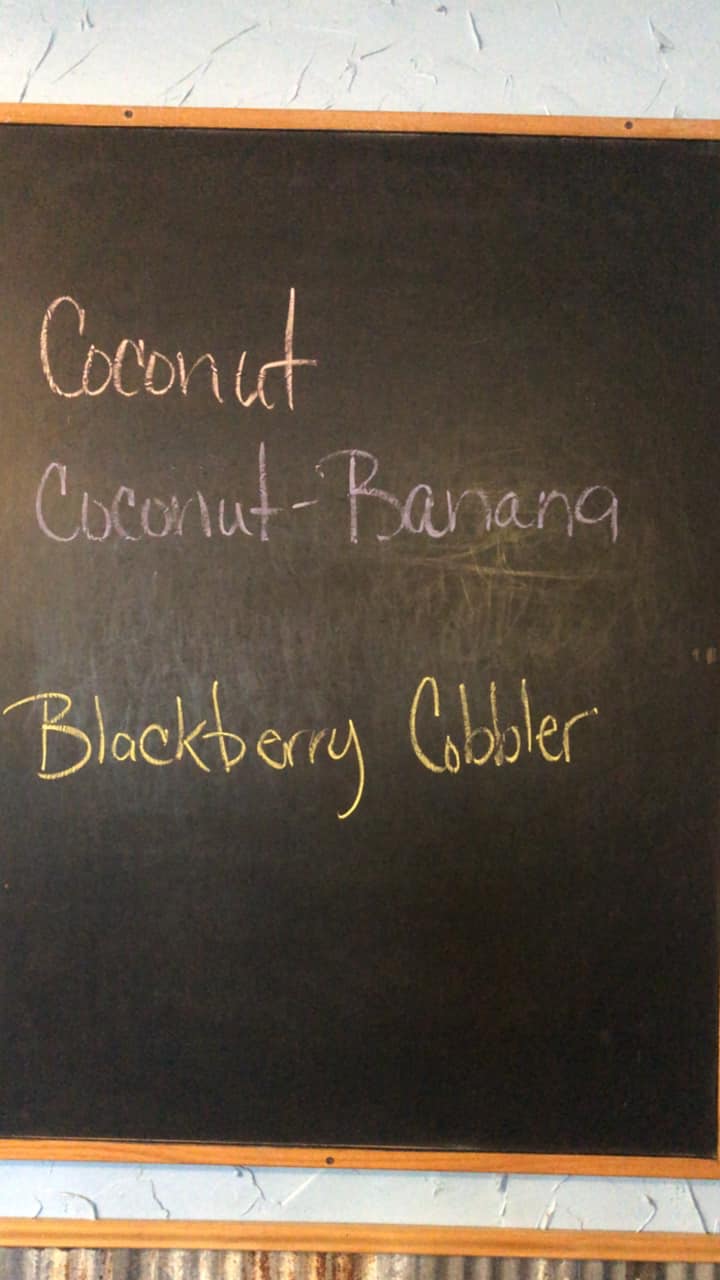 Coconut
Coconut-Banana
Blackberry Cobbler